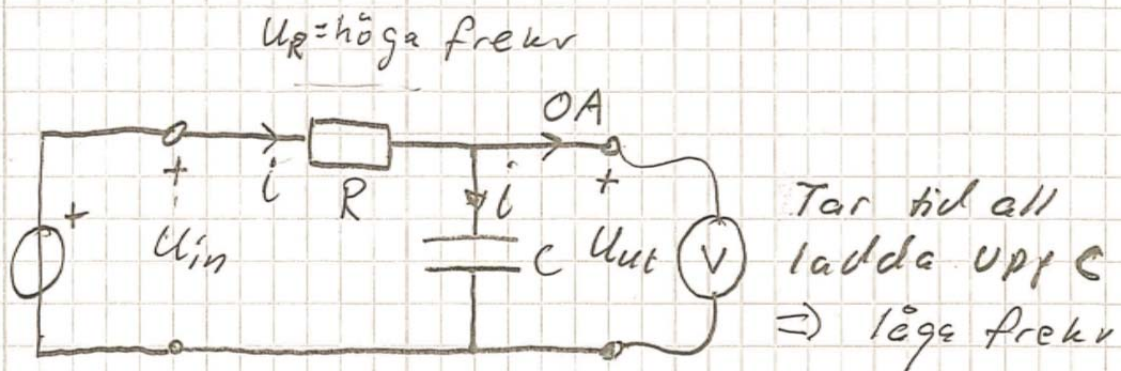 U_R = höga frekv
OA
+
i
R
i
+
+
U_in
C
U_ut
V
Tar tid all
ladda upp C
⇒ låga frekv